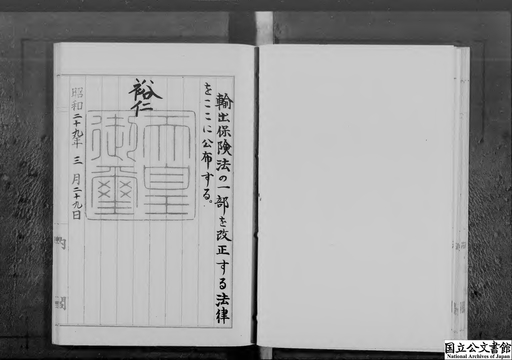 輸出保険法の一部を改正する法律
をここに公布する。
裕仁
天皇
御璽
昭和二十九年三月二十九日
内閣
国立公文書館
National Archives of Japan